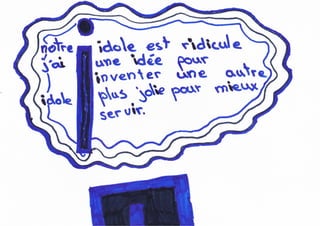 notre idole est ridicule
j'ai une idée pour
inventer une autre
idole plus jolie pour mieux
servir.